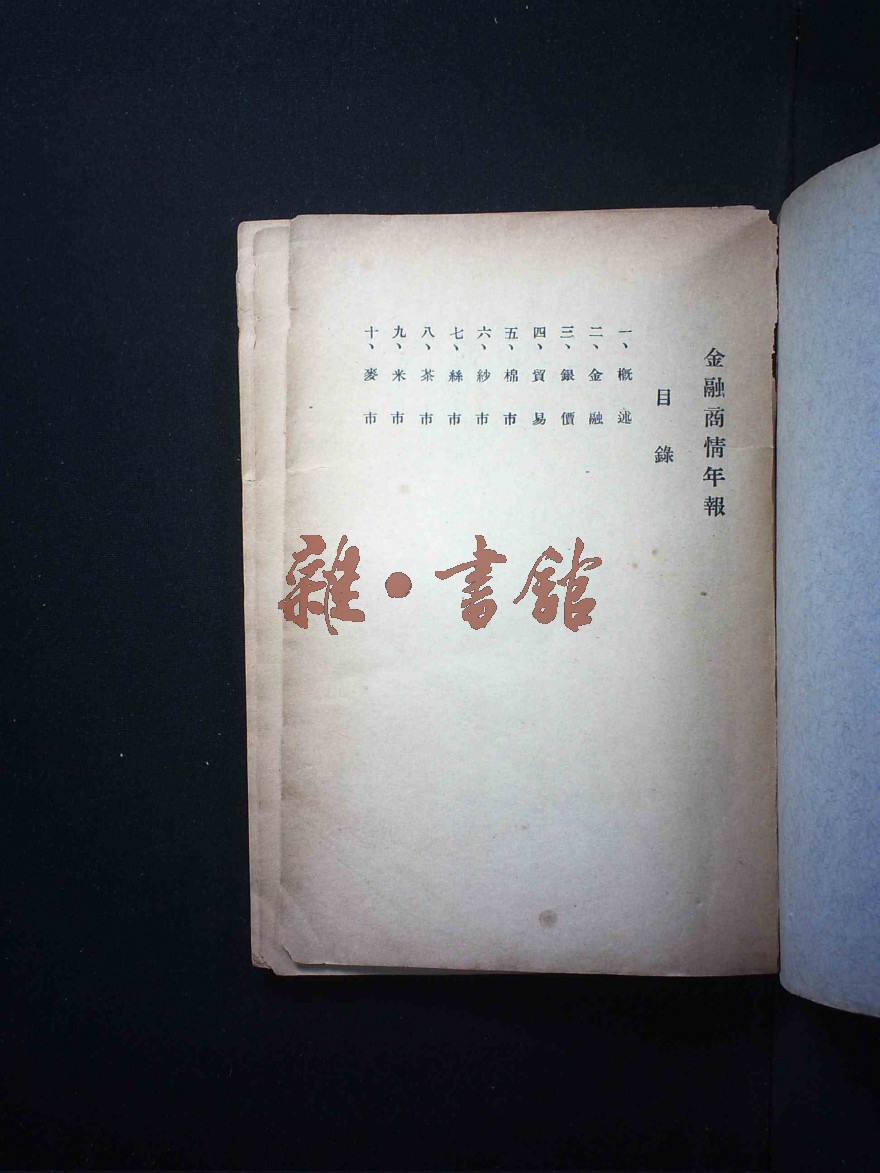 金融商情年報
目錄
一、概述
二、金融
三、銀價
四、貿易
五、棉市
六、紗市
七、絲市
八、茶市
九、米市
十、麥市
雜·書館